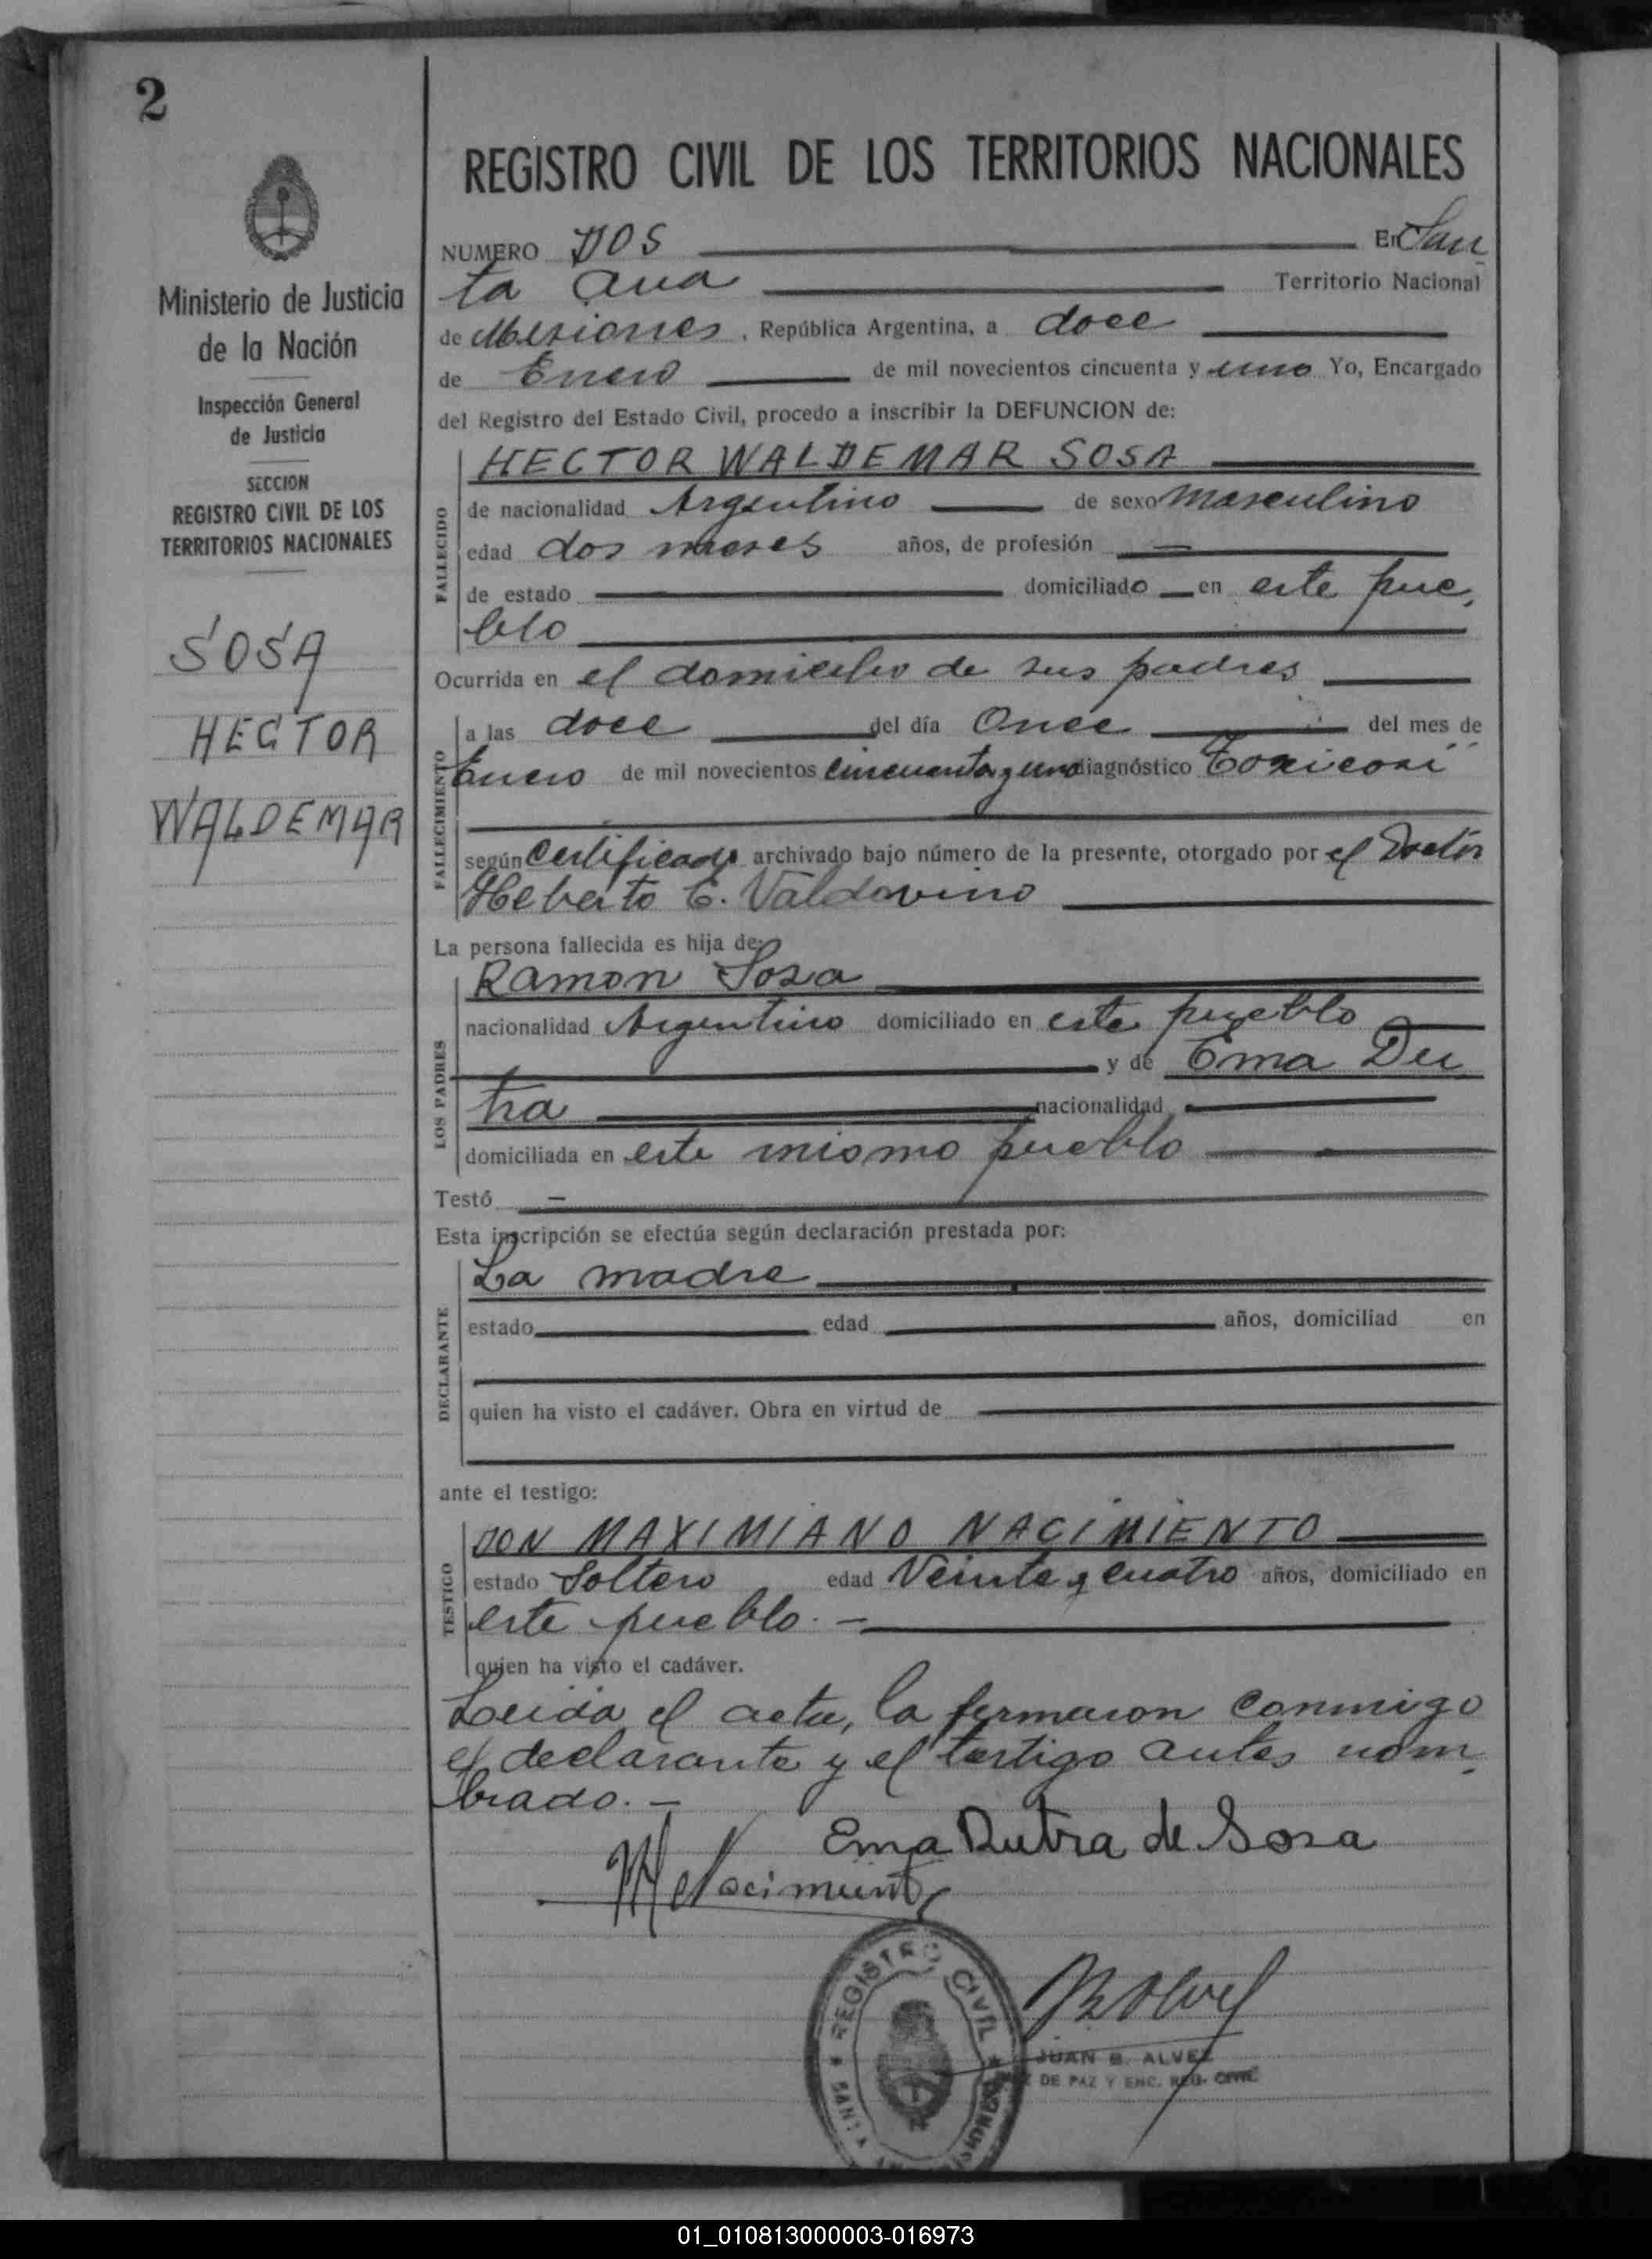 2
Ministerio de Justicia
de la Nación
Inspección General
de Justicia
SECCION
REGISTRO CIVIL DE LOS
TERRITORIOS NACIONALES
SOSA
HECTOR
WALDEMAR
REGISTRO CIVIL DE LOS TERRITORIOS NACIONALES
NUMERO DOS En San
ta Ana Territorio Nacional
de Misiones, República Argentina, a doce
de Enero de mil novecientos cincuenta y uno Yo, Encargado
del Registro del Estado Civil, procedo a inscribir la DEFUNCION de:
FALLECIDO
HECTOR WALDEMAR SOSA
de nacionalidad Argentino de sexo Masculino
edad dos meses años, de profesión —
de estado domiciliado en este pue
blo
Ocurrida en el domicilio de sus padres
FALLECIMIENTO
a las doce del día Once del mes de
Enero de mil novecientos cincuenta y uno diagnóstico Toxicosi
según certificado archivado bajo número de la presente, otorgado por el Doctor
Heberto E. Valdovino
La persona fallecida es hija de:
LOS PADRES
Ramon Sosa
nacionalidad Argentino domiciliado en este pueblo
y de Ema Du
tra nacionalidad
domiciliada en este mismo pueblo
Testó —
Esta inscripción se efectúa según declaración prestada por:
DECLARANTE
La madre
estado edad años, domiciliad en
quien ha visto el cadáver. Obra en virtud de
ante el testigo:
TESTIGO
DON MAXIMIANO NACIMIENTO
estado Soltero edad Veinte y cuatro años, domiciliado en
este pueblo. —
quien ha visto el cadáver.
Leida el acta, la firmaron conmigo
el declarante y el testigo antes nom
brado. —
Ema Dutra de Sosa
M Nacimiento
REGISTRO CIVIL
JUAN B. ALVEZ
DE PAZ Y ENC. REG. CIVIL
01_010813000003-016973